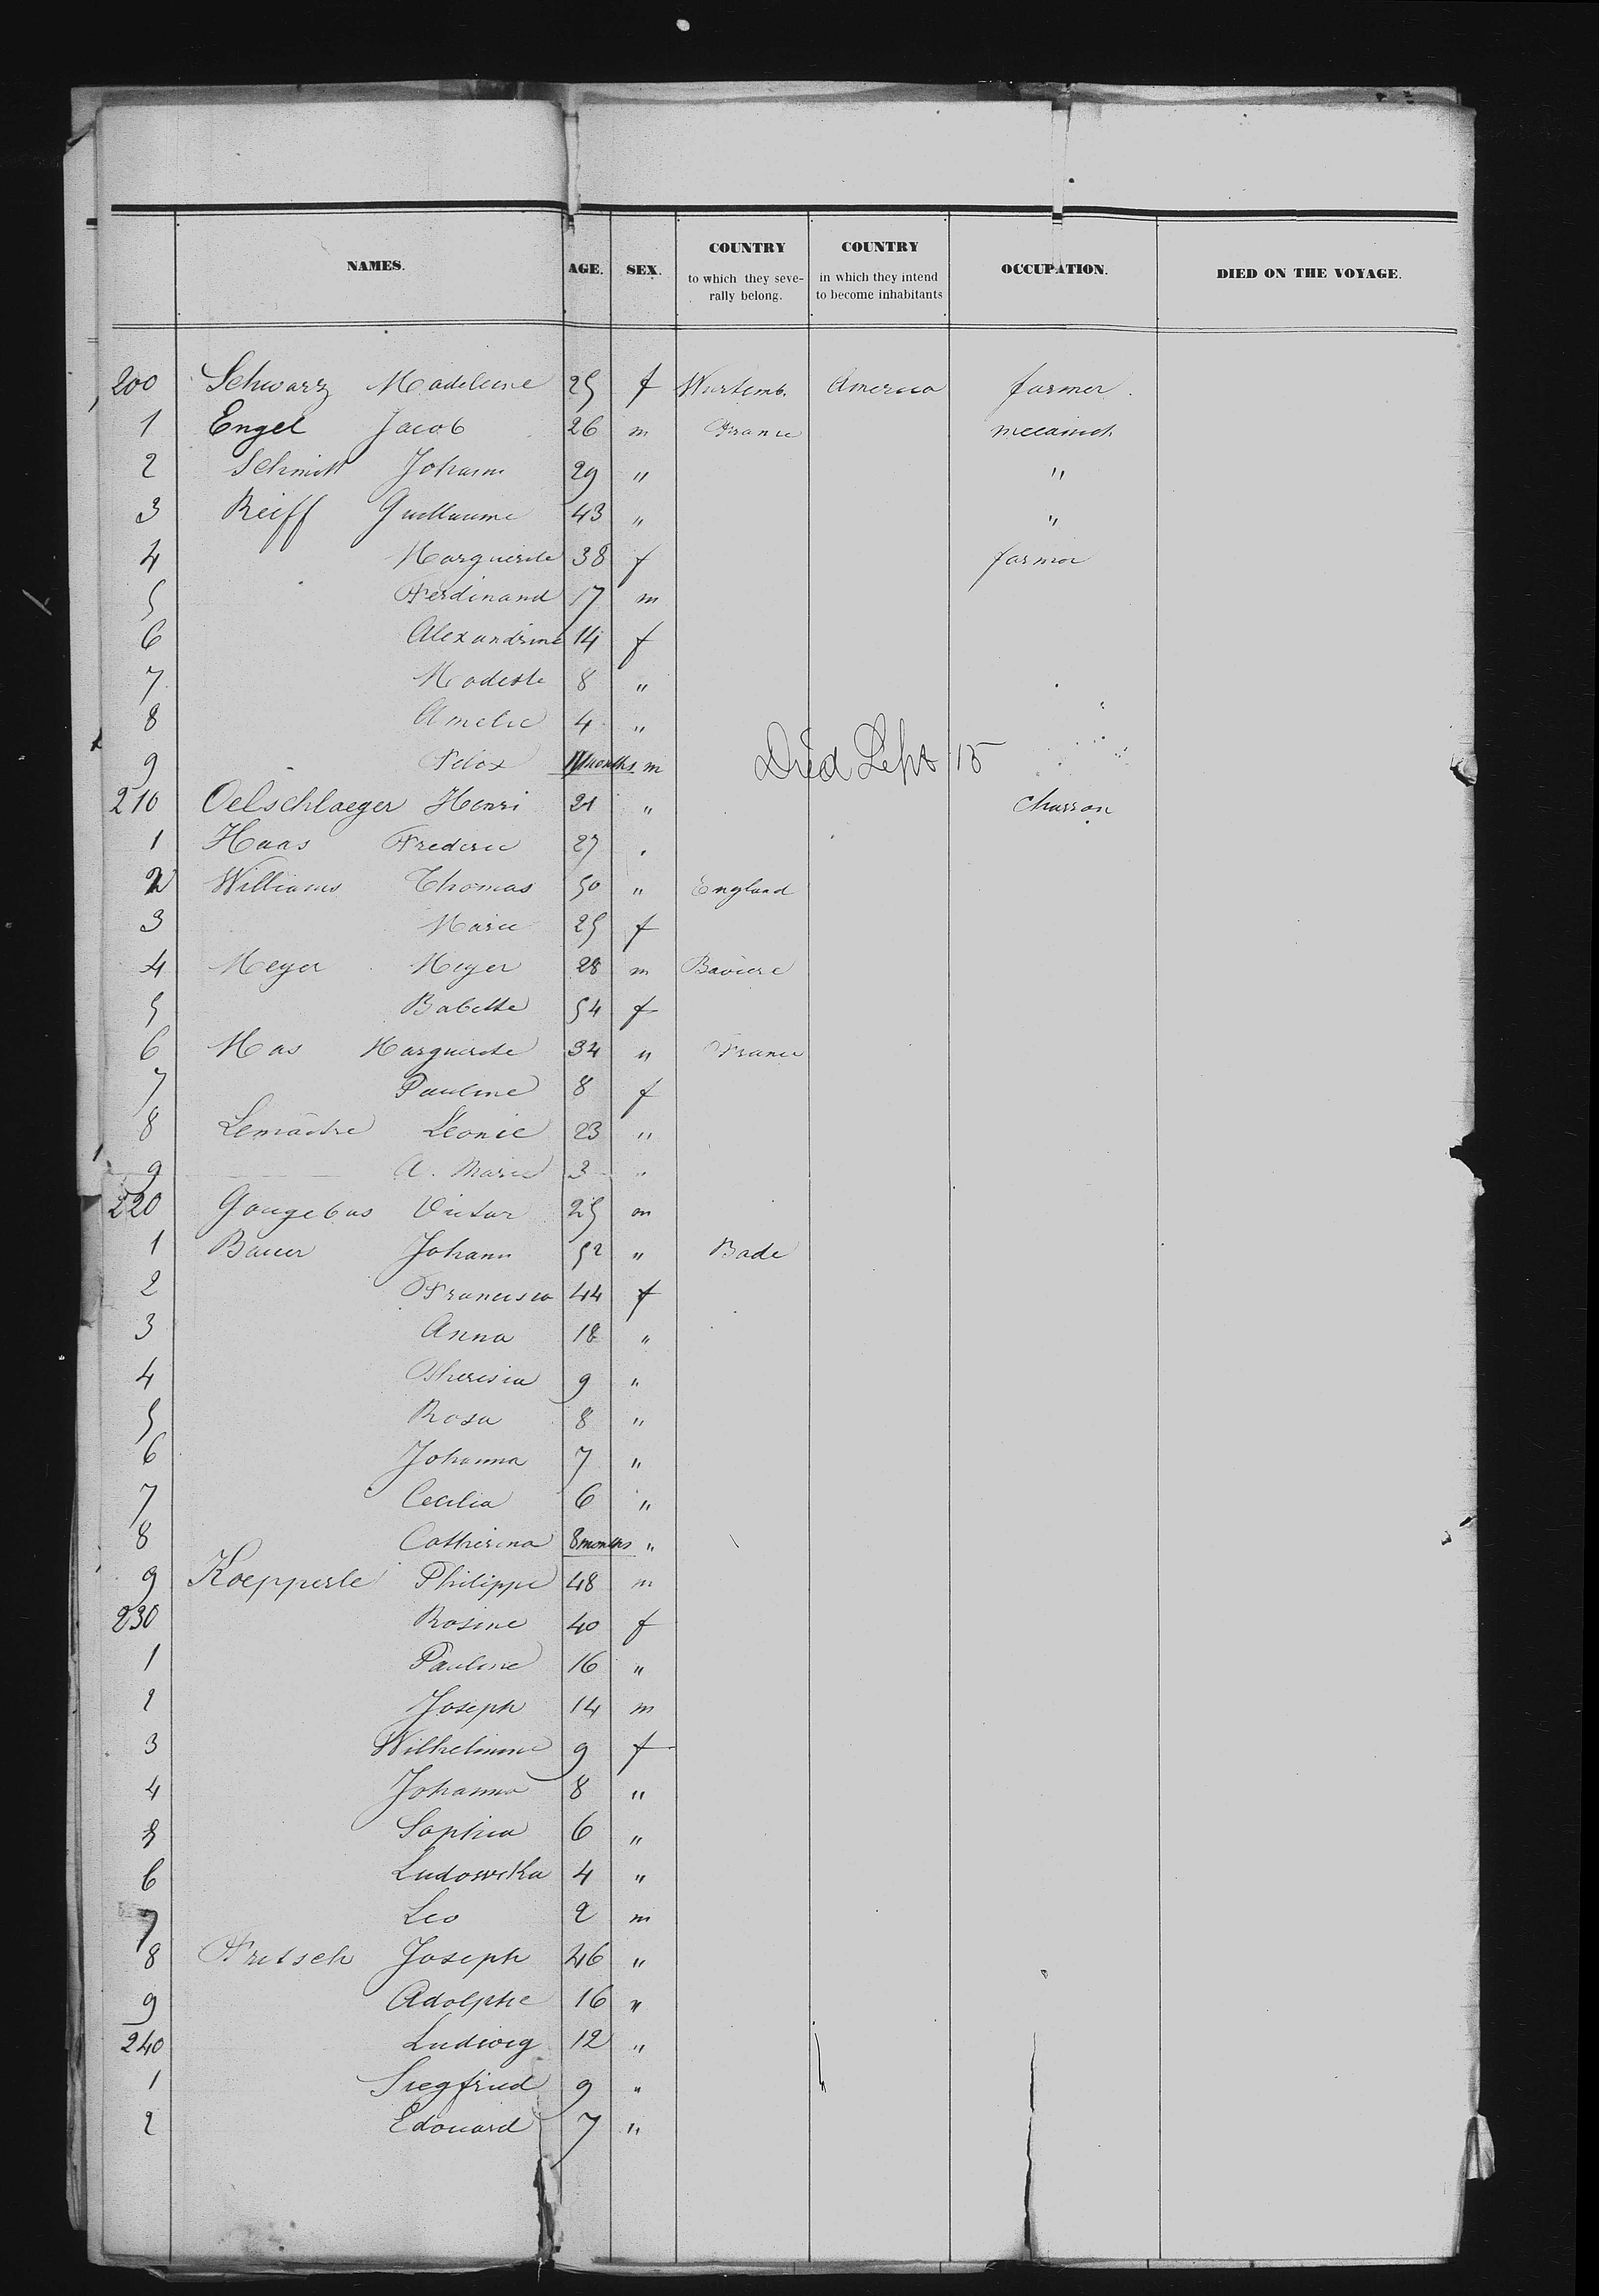 NAMES. AGE. SEX. COUNTRY to which they severally belong. COUNTRY in which they intend to become inhabitants OCCUPATION. DIED ON THE VOYAGE.
200 Schwarz Madeleine 25 f Wurtemb. America farmer.
1 Engel Jacob 26 m France mecanich
2 Schmitt Johann 29 " "
3 Reiff Guillaume 43 " "
4 Marguerite 38 f farmer
5 Ferdinand 17 m
6 Alexandrine 14 f
7 Modeste 8 "
8 Amelie 4 "
9 Felix 11 months m Died Sept 15
210 Oelschlaeger Henri 21 " charson
1 Haas Frederic 27 "
2 Williams Thomas 50 " England
3 Marie 25 f
4 Meyer Meyer 28 m Baviere
5 Babette 54 f
6 Mas Marguerite 34 " France
7 Pauline 8 f
8 Lemaitre Leonie 23 "
9 A. Marie 3 "
220 Gougebus Victor 25 m
1 Bauer Johann 52 " Bade
2 Francisca 44 f
3 Anna 18 "
4 Theresia 9 "
5 Rosa 8 "
6 Johanna 7 "
7 Cecilia 6 "
8 Catherina 8 months "
9 Koepperle Philippe 48 m
230 Rosine 40 f
1 Pauline 16 "
2 Joseph 14 m
3 Wilhelmine 9 f
4 Johanna 8 "
5 Sophia 6 "
6 Ludowika 4 "
7 Leo 2 m
8 Fritsch Joseph 46 "
9 Adolphe 16 "
240 Ludwig 12 "
1 Siegfried 9 "
2 Edouard 7 "